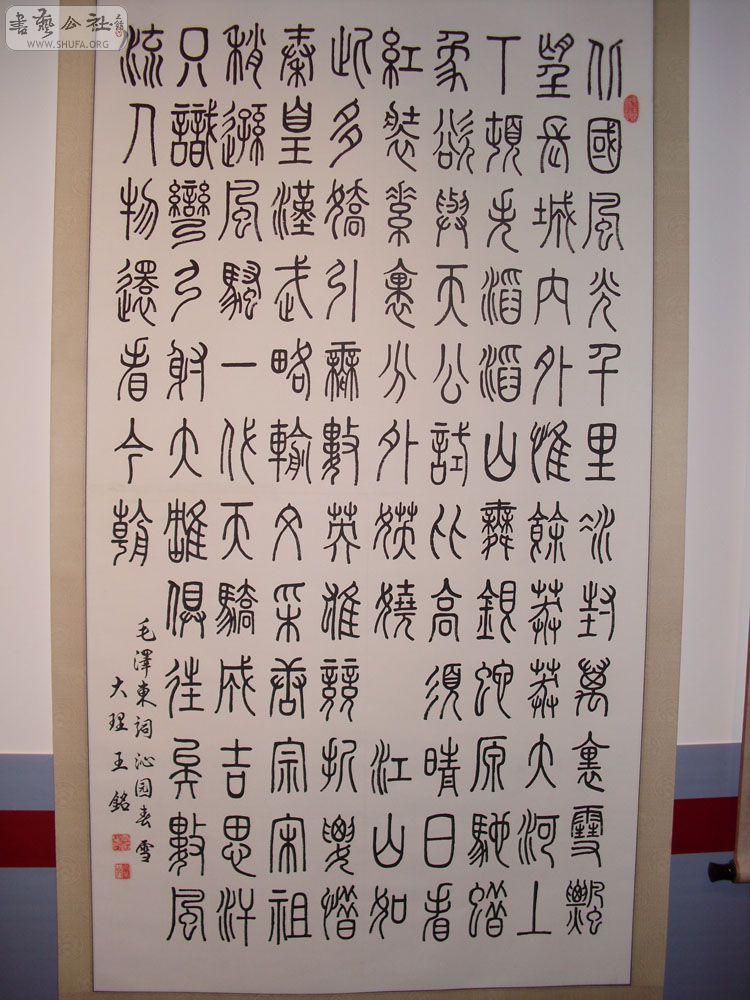 書藝公社
WWW.SHUFA.ORG
北國風光千里冰封萬裏雪飄
望長城內外惟餘莽莽大河上
下頓失滔滔山舞銀蛇原馳蠟
象欲與天公試比高須晴日看
紅裝素裹分外妖嬈江山如
此多嬌引無數英雄競折腰惜
秦皇漢武略輸文采唐宗宋祖
稍遜風騷一代天驕成吉思汗
只識彎弓射大雕俱往矣數風
流人物還看今朝
毛澤東詞沁园春雪
大理王銘